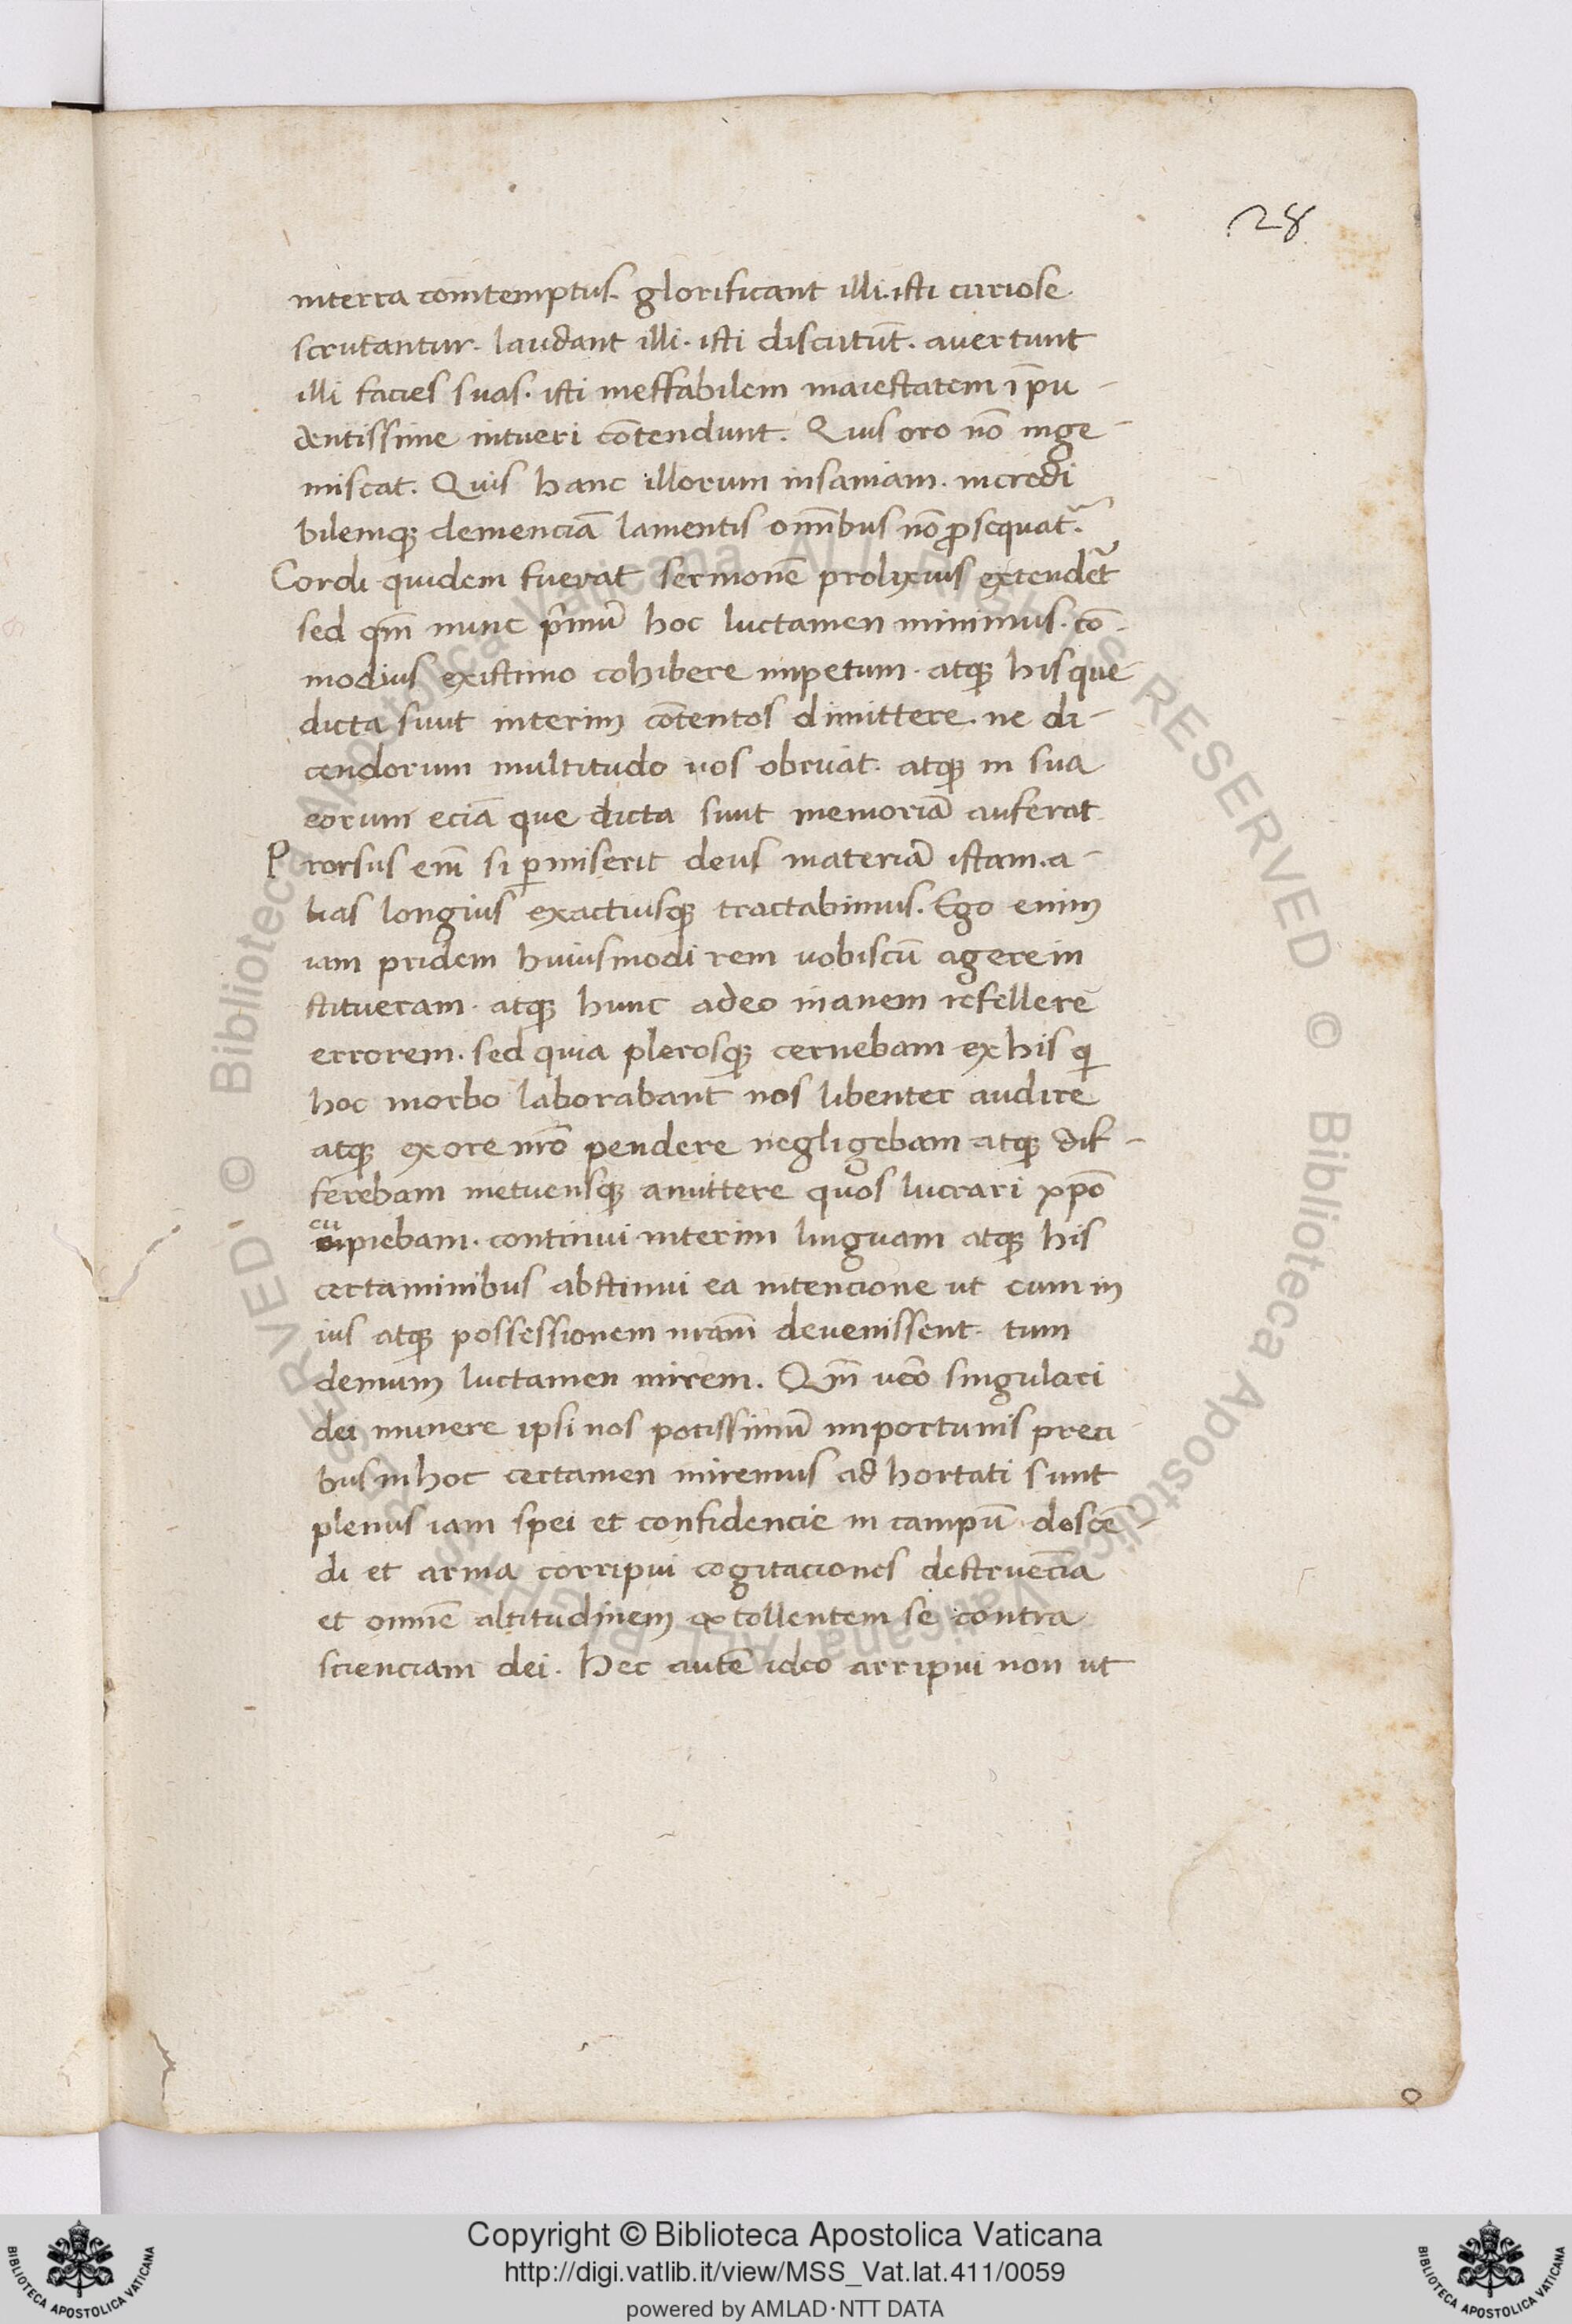 28
interra comtemptus. glorificant illi. isti curiose
scrutantur. laudant illi. isti discutiūt. avertunt
illi facies suas. isti ineffabilem maiestatem īpu-
dentissime intueri cōtendunt. Quis oro nō inge-
miscat. Quis hanc illorum insaniam. incredi
bilemqꝫ demenciā lamentis omībus nō ꝓsequat᷑.
Cordi quidem fuerat sermonē prolixius extendet᷑
sed qm̄ nunc pͥmū hoc luctamen inimus. cō-
modius existimo cohibere impetum. atqꝫ his que
dicta sunt interim cōtentos dimittere. ne di-
cendorum multitudo vos obruat. atqꝫ in sua
eorum eciā que dicta sunt memoriā auferat
Prorsus em̄ si ꝑmiserit deus materiā istam. a-
lias longius exactiusqꝫ tractabimus. Ego enim
iam pridem huiusmodi rem vobiscū agere in
stitueram. atqꝫ hunc adeo inanem refellere
errorem. sed quia plerosqꝫ cernebam ex his qi
hoc morbo laborabant nos libenter audire
atqꝫ ex ore nr̄o pendere negligebam atqꝫ dif-
ferebam metuensqꝫ amittere quos lucrari xp̄o
cupiebam. continui interim linguam atqꝫ his
certaminibus abstinui ea intencione ut cum in
ius atqꝫ possessionem nr̄am devenissent. tum
demum luctamen inirem. Qm̄ vēo singulari
dei munere ipsi nos potissimū importunis preci
bus in hoc certamen iniremus ad hortati sunt
plenus iam spei et confidencie in campū descē-
di et arma corripui cogitaciones destruēcia
et omnē altitudinem extollentem se contra
scienciam dei. Hec autē ideo arripui non ut
Copyright © Biblioteca Apostolica Vaticana
http://digi.vatlib.it/view/MSS_Vat.lat.411/0059
powered by AMLAD·NTT DATA